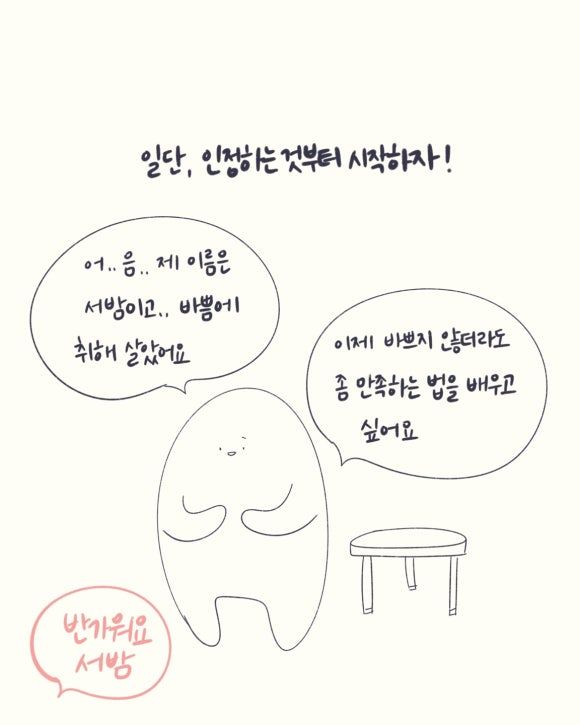 일단, 인정하는것부터 시작하자!
어.. 음.. 제 이름은
서밤이고.. 바쁨에
취해 살았어요
이제 바쁘지 않더라도
좀 만족하는 법을 배우고
싶어요
반가워요
서밤